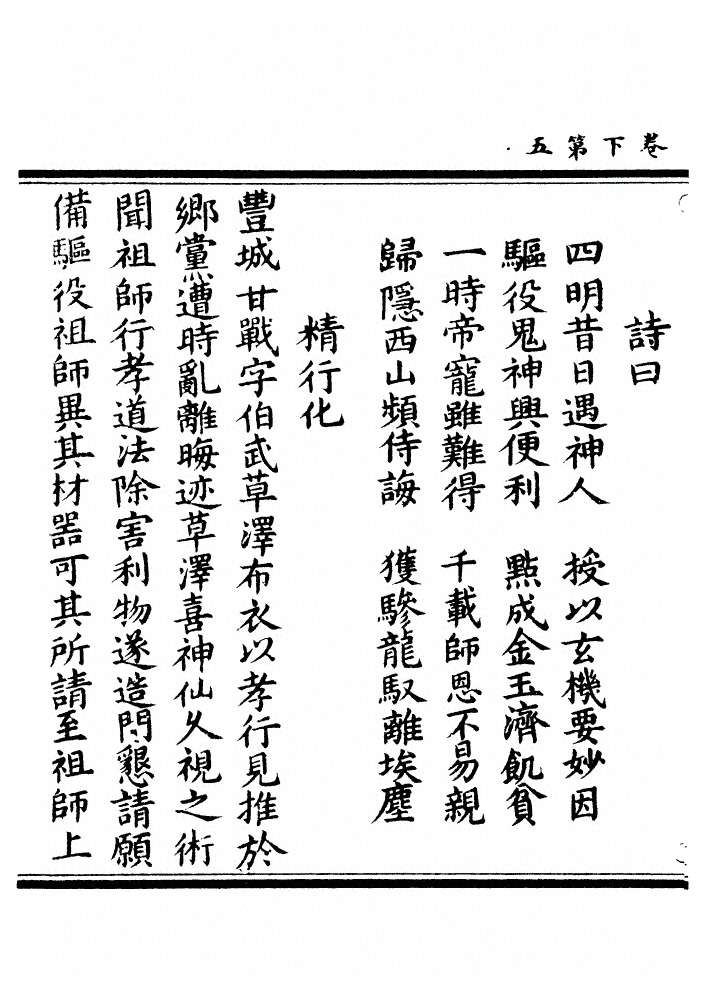 卷下第五
詩曰
四明昔日遇神人　授以玄機要妙因
驅役鬼神興便利　點成金玉濟飢貧
一時帝寵雖難得　千載師恩不易親
歸隱西山頻侍誨　獲驂龍馭離埃塵
精行化
豐城甘戰字伯武草澤布衣以孝行見推於
鄉黨遭時亂離晦迹草澤喜神仙久視之術
聞祖師行孝道法除害利物遂造門懇請願
備驅役祖師異其材器可其所請至祖師上